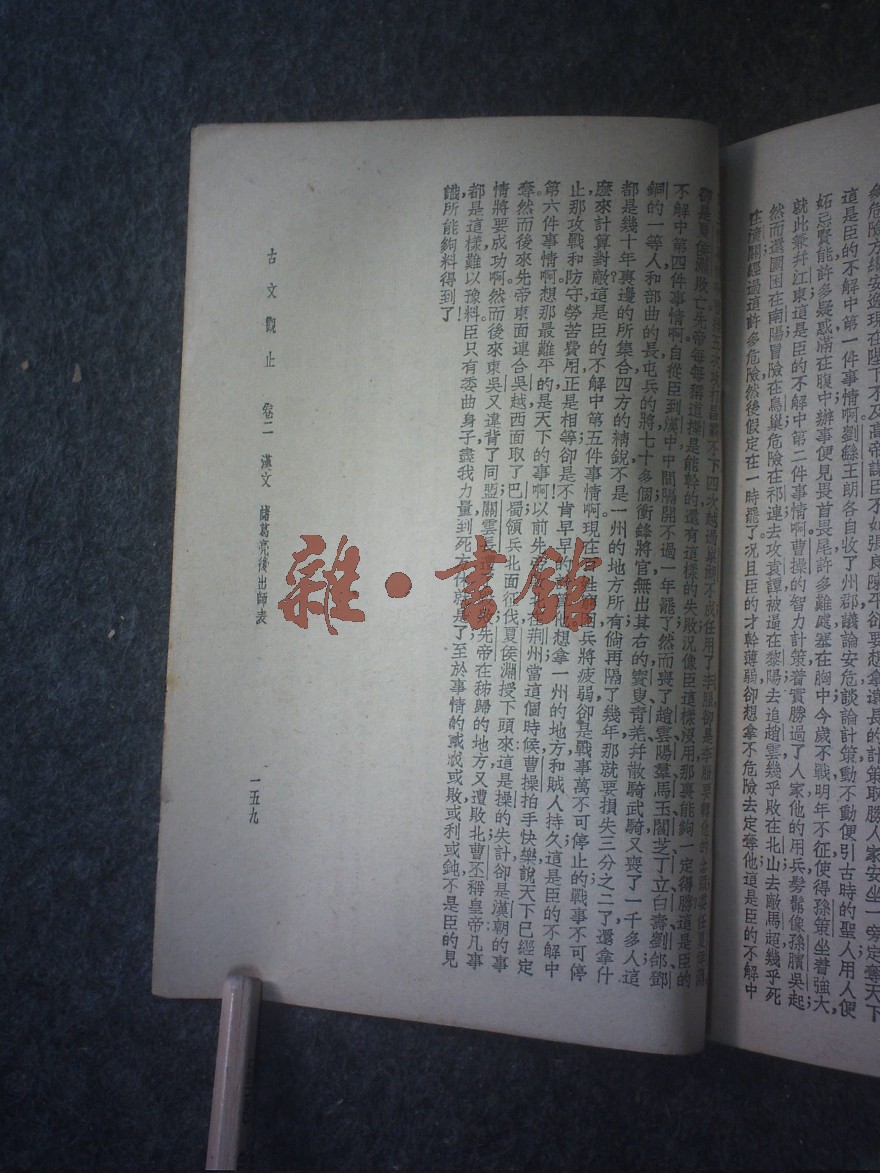 這是臣的不解中第一件事情啊劉繇王朗各自收了州郡議論安危談論計策動不動便引古時的聖人用人便
妬忌賢能許多疑惑滿在腹中辦事便見畏首畏尾許多難處塞在胸中今歲不戰明年不征使得孫策坐着強大
就此兼并江東這是臣的不解中第二件事情啊曹操的智力計策着實勝過了人家他的用兵髣髴像孫臏吳起
然而還圍困在南陽冒險在烏巢危險在祁連去攻袁譚被逼在黎陽去追趙雲幾乎敗在北山去敵馬超幾乎死
在潼關經過這許多危險然後假定在一時罷了況且臣的才幹薄弱卻想拿不危險去定奪他這是臣的不解中
卻是夏侯淵敗亡先帝每每稱道操是能幹的還有這樣的失敗況像臣這樣沒用那裏能夠一定得勝這是臣的
不解中第四件事情啊自從臣到漢中中間隔開不過一年罷了然而喪了趙雲陽羣馬玉閻芝丁立白壽劉郃鄧
銅的一等人和部曲的長屯兵的將七十多個衝鋒將官無出其右的賨叟青羌并散騎武騎又喪了一千多人這
都是幾十年裏邊的所集合四方的精銳不是一州的地方所有倘再隔了幾年那就要損失三分之二了還拿什
麼來計算對敵這是臣的不解中第五件事情啊現在 兵將疲弱卻是戰事萬不可停止的戰事不可停
止那攻戰和防守勞苦費用正是相等卻是不肯早早的 想拿一州的地方和賊人持久這是臣的不解中
第六件事情啊想那最難平的是天下的事啊以前先帝 荊州當這個時候曹操拍手快樂說天下已經定
奪然而後來先帝東面連合吳越西面取了巴蜀領兵北面征伐夏侯淵授下頭來這是操的失計卻是漢朝的事
情將要成功啊然而後來東吳又違背了同盟關雲長 先帝在秭歸的地方又遭敗北曹丕稱皇帝凡事
都是這樣難以豫料臣只有委曲身子盡我力量到死方休就是了至於事情的或成或敗或利或鈍不是臣的見
識所能夠料得到了！
古文觀止 卷二 漢文 諸葛亮後出師表
一五九
雜·書館